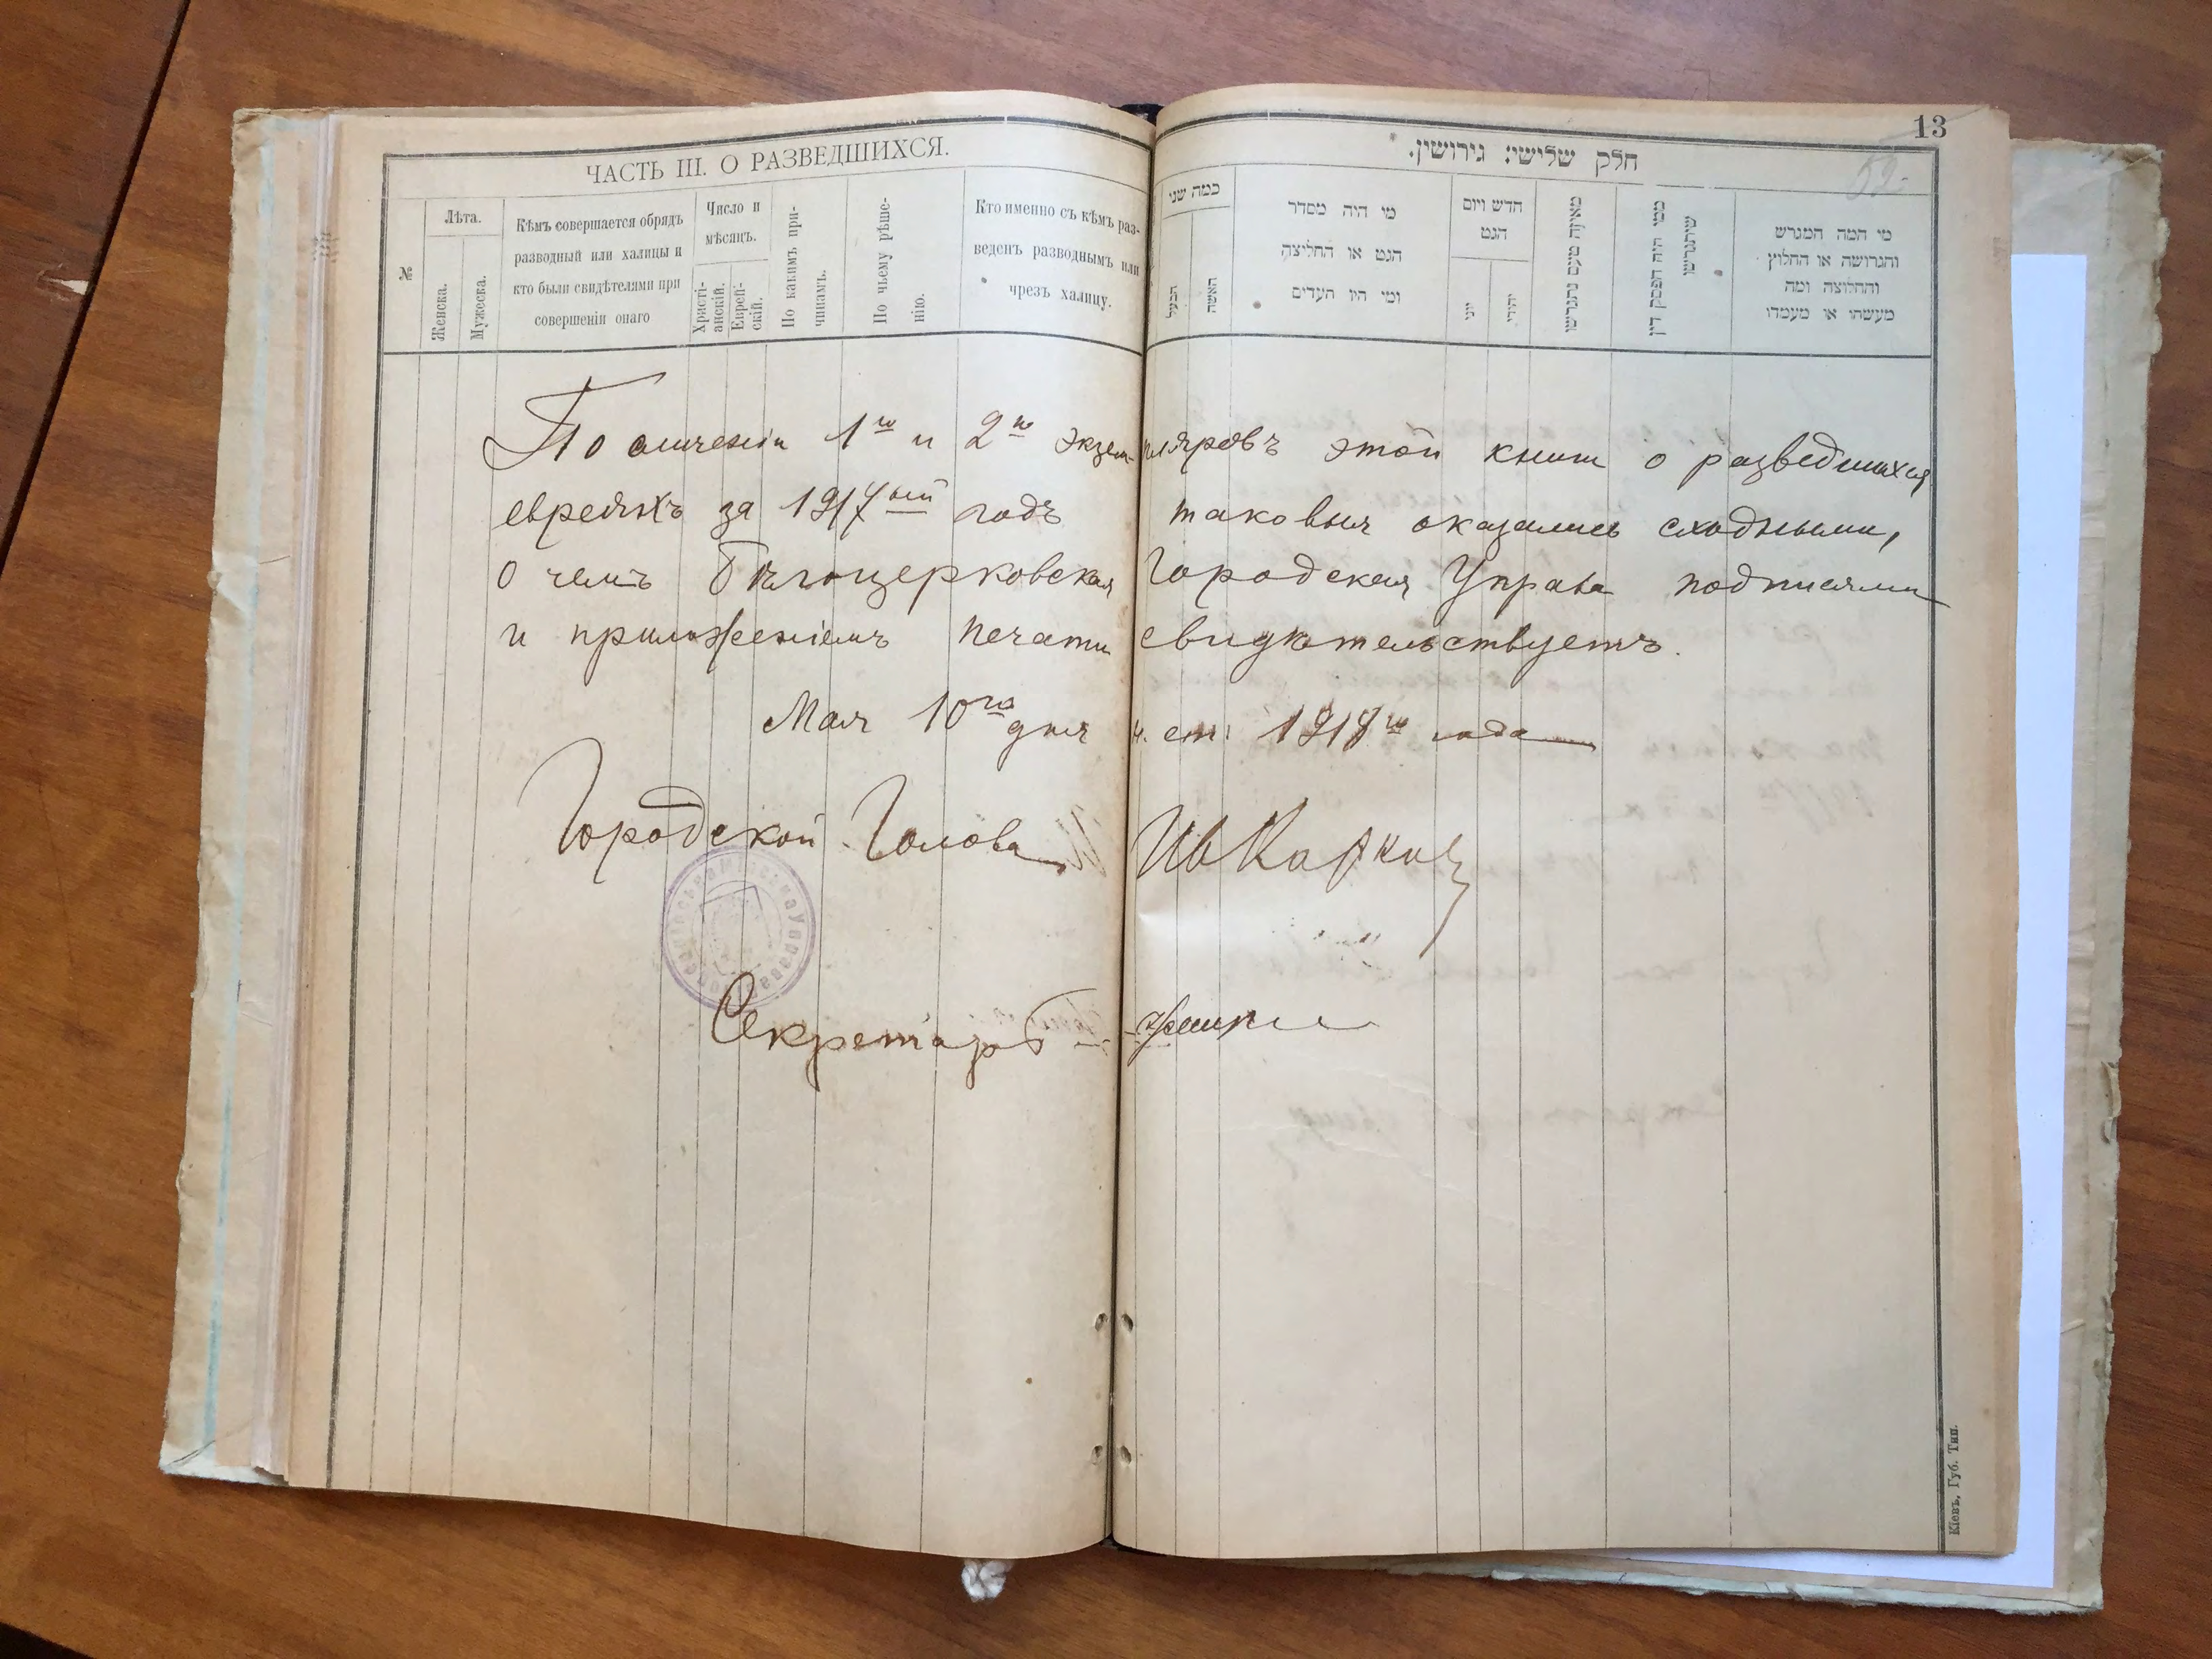 13
52.
ЧАСТЬ III. О РАЗВЕДШИХСЯ.
№
Лѣта.
Женска.
Мужеска.
Кѣмъ совершается обрядъ
разводный или халицы и
кто были свидѣтелями при
совершеніи онаго
Число и
мѣсяцъ.
Христі-
анскій.
Еврей-
скій.
По какимъ при-
чинамъ.
По чьему рѣше-
нію.
Кто именно съ кѣмъ раз-
веденъ разводнымъ или
чрезъ халицу.
חלק שלישי: גירושין.
כמה שני
הבעל
האשה
מי היה מסדר
הגט או החליצה
ומי היו העדים
חדש ויום
הגט
יוני
יהודי
מאיזה טעם נתגרשו
ממי היה הפסק דין
שיתגרשו
מי המה המגרש
והגרושה או החלוץ
והחלוצה ומה
מעשהו או מעמדו
По сличеніи 1го и 2го экземпляровъ этой книги о разведшихся
евреяхъ за 1917ый годъ таковыя оказались сходными,
о чемъ Бѣлоцерковская Городская Управа подписями
и приложеніемъ печати свидѣтельствуетъ.
Мая 10го дня н. ст. 1918го года
Городской Голова
Секретарь
Кіевъ, Губ. Тип.